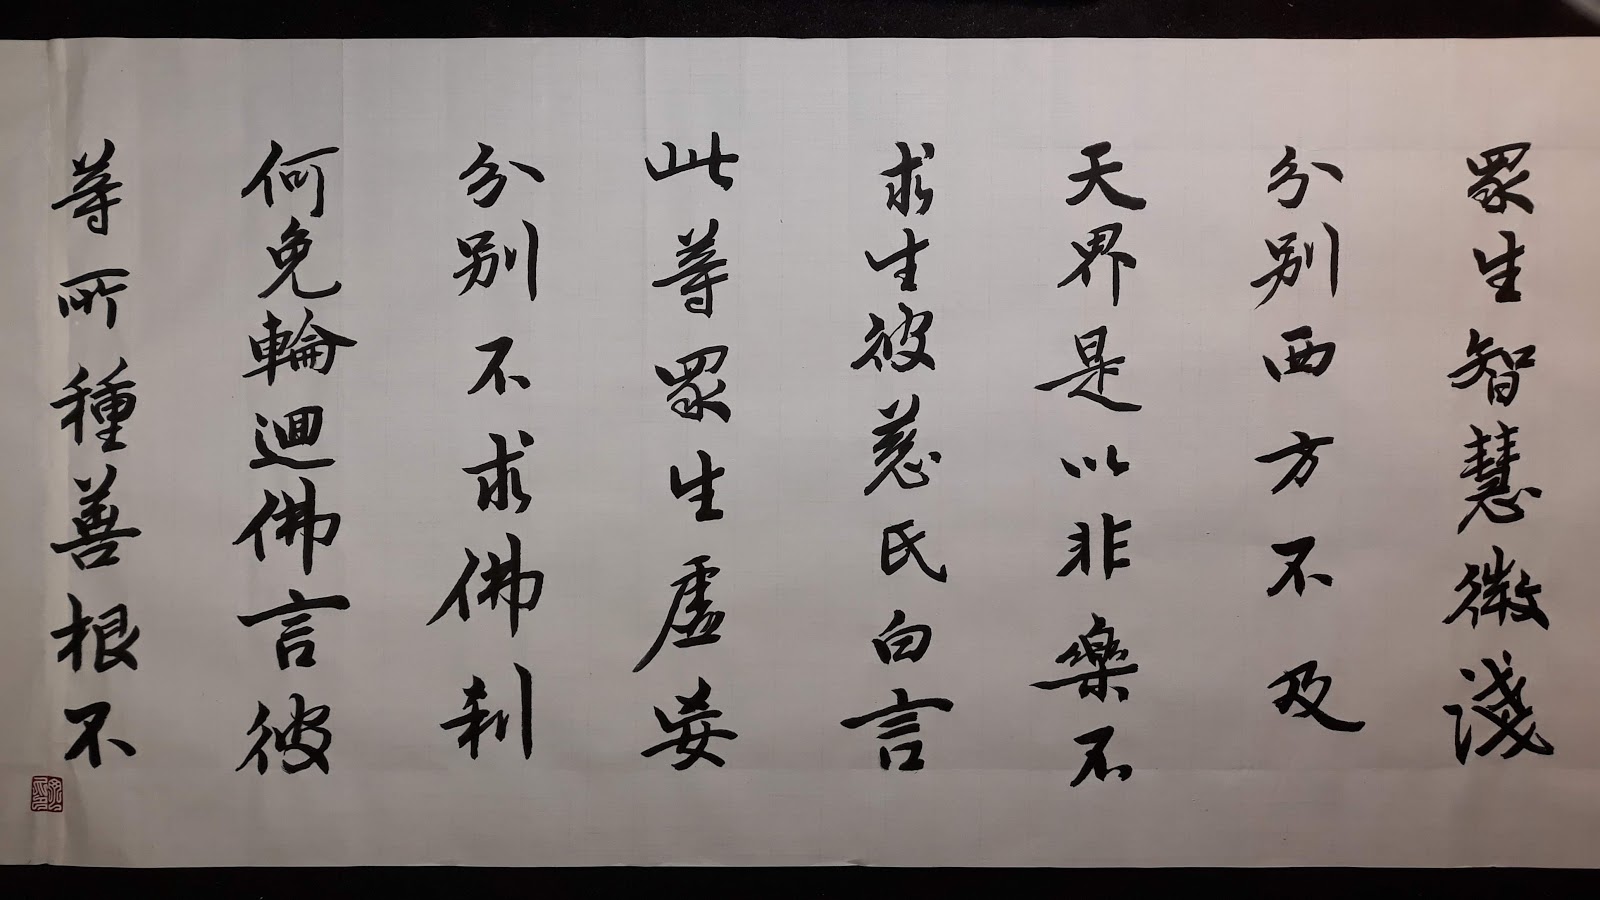 眾生智慧微淺
分別西方不及
天界是以非樂不
求生彼慈氏白言
此等眾生虛妄
分別不求佛刹
何免輪迴佛言彼
等所種善根不